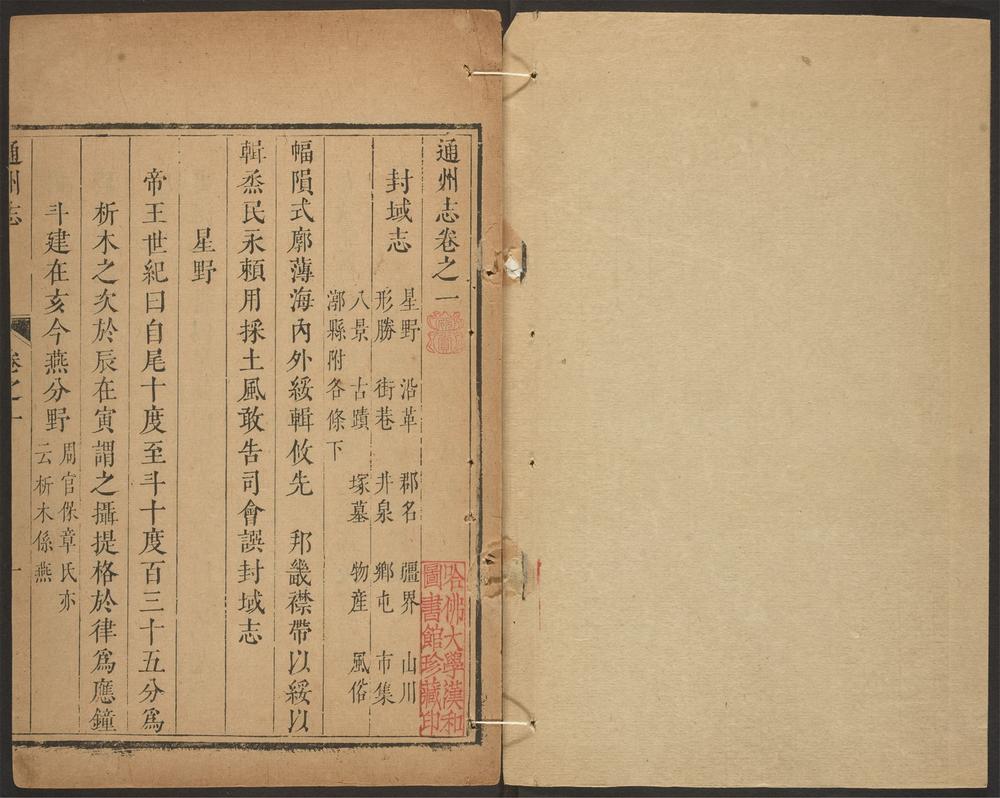 通州志卷之一
封域志
星野　沿革　郡名　疆界　山川
形勝　街巷　井泉　鄉屯　市集
八景　古蹟　塚墓　物產　風俗
漷縣附各條下
幅隕式廓薄海內外綏輯攸先　邦畿襟帶以綏以
輯烝民永賴用採土風敢告司會譔封域志
星野
帝王世紀曰自尾十度至斗十度百三十五分爲
析木之次於辰在寅謂之攝提格於律爲應鐘
斗建在亥今燕分野
周官保章氏亦
云析木係燕
通州志
卷之一
一
哈佛大學漢和
圖書館珍藏印